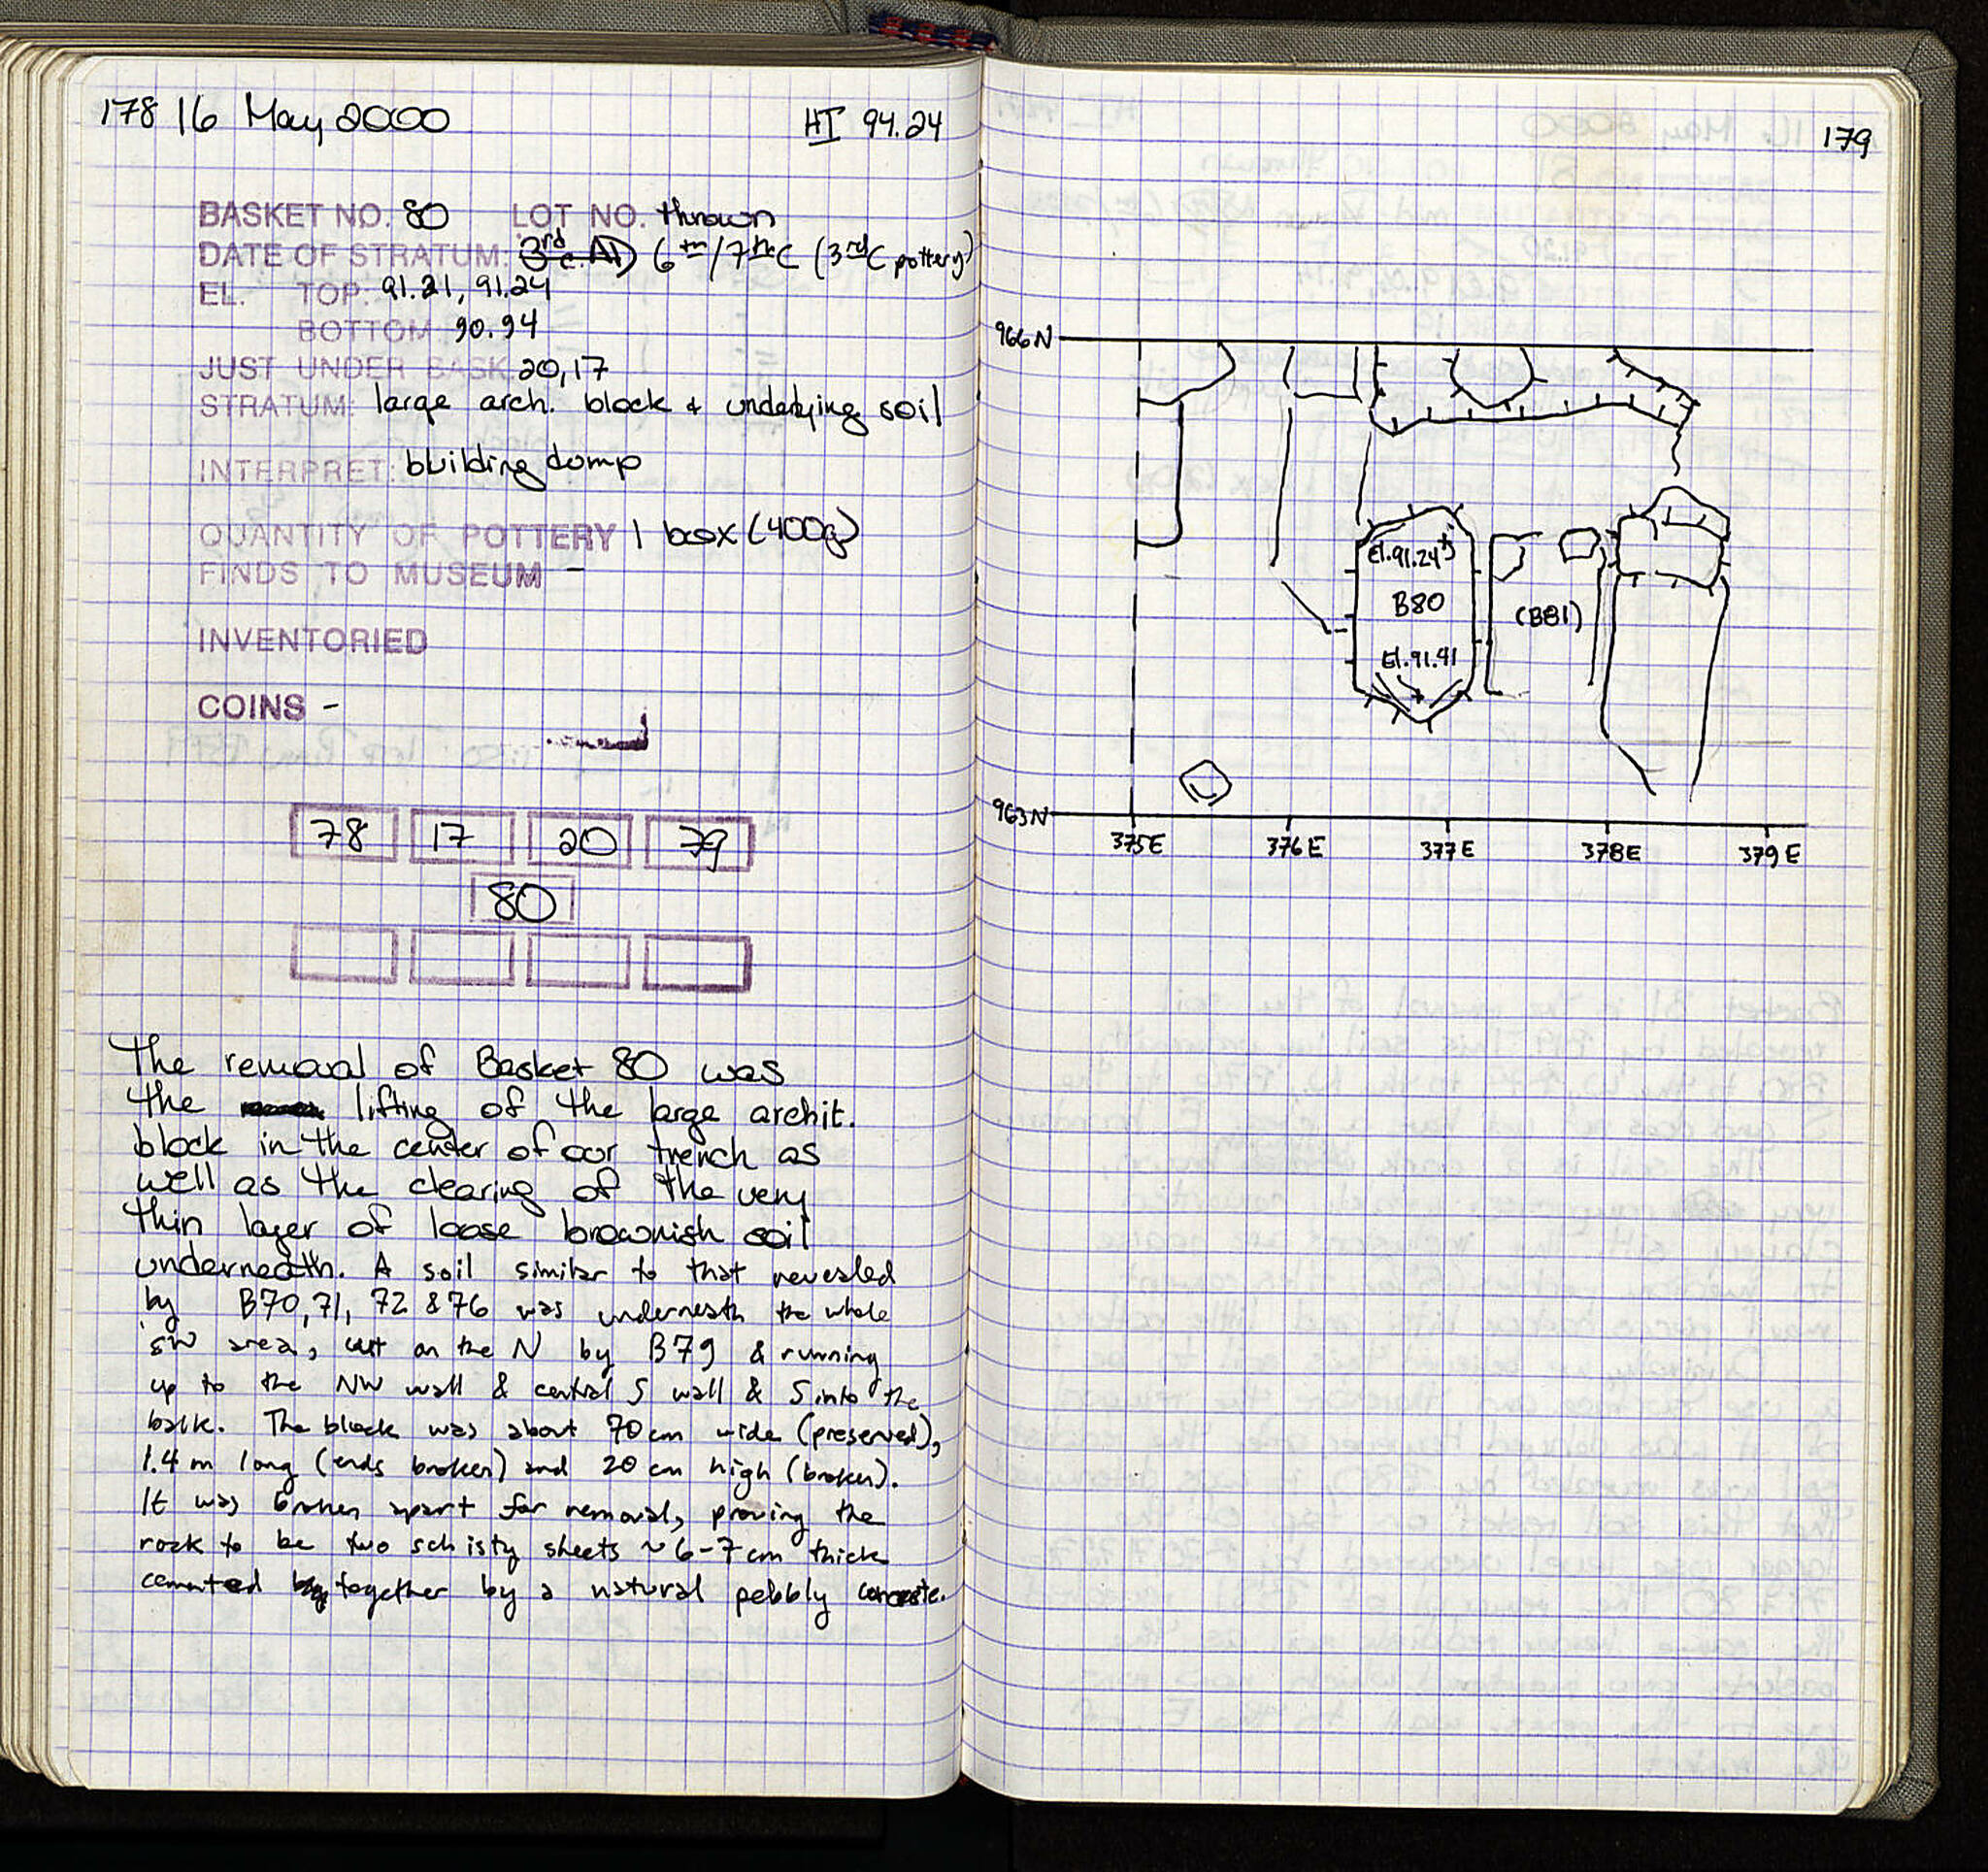 178 16 May 2000 HI 94.24
BASKET NO. 80 LOT NO. thrown
DATE OF STRATUM: 3rd c. AD 6th/7thC (3rdC pottery)
EL. TOP: 91.21, 91.24
BOTTOM 90.94
JUST UNDER BASK. 20,17
STRATUM: large arch. block & underlying soil
INTERPRET: building dump
QUANTITY OF POTTERY 1 box (400g)
FINDS TO MUSEUM -
INVENTORIED
COINS -
78 17 20 79
80
The removal of Basket 80 was
the lifting of the large archit.
block in the center of our trench as
well as the clearing of the very
thin layer of loose brownish soil
underneath. A soil similar to that revealed
by B70, 71, 72 & 76 was underneath the whole
SW area, cut on the N by B79 & running
up to the NW wall & central S wall & S into the
balk. The block was about 70 cm wide (preserved),
1.4 m long (ends broken) and 20 cm high (broken).
It was broken apart for removal, proving the
rock to be two schisty sheets ~ 6-7 cm thick
cemented together by a natural pebbly concrete.
179
966N
El. 91.24
B80
(B81)
El. 91.41
963N
375E 376E 377E 378E 379E